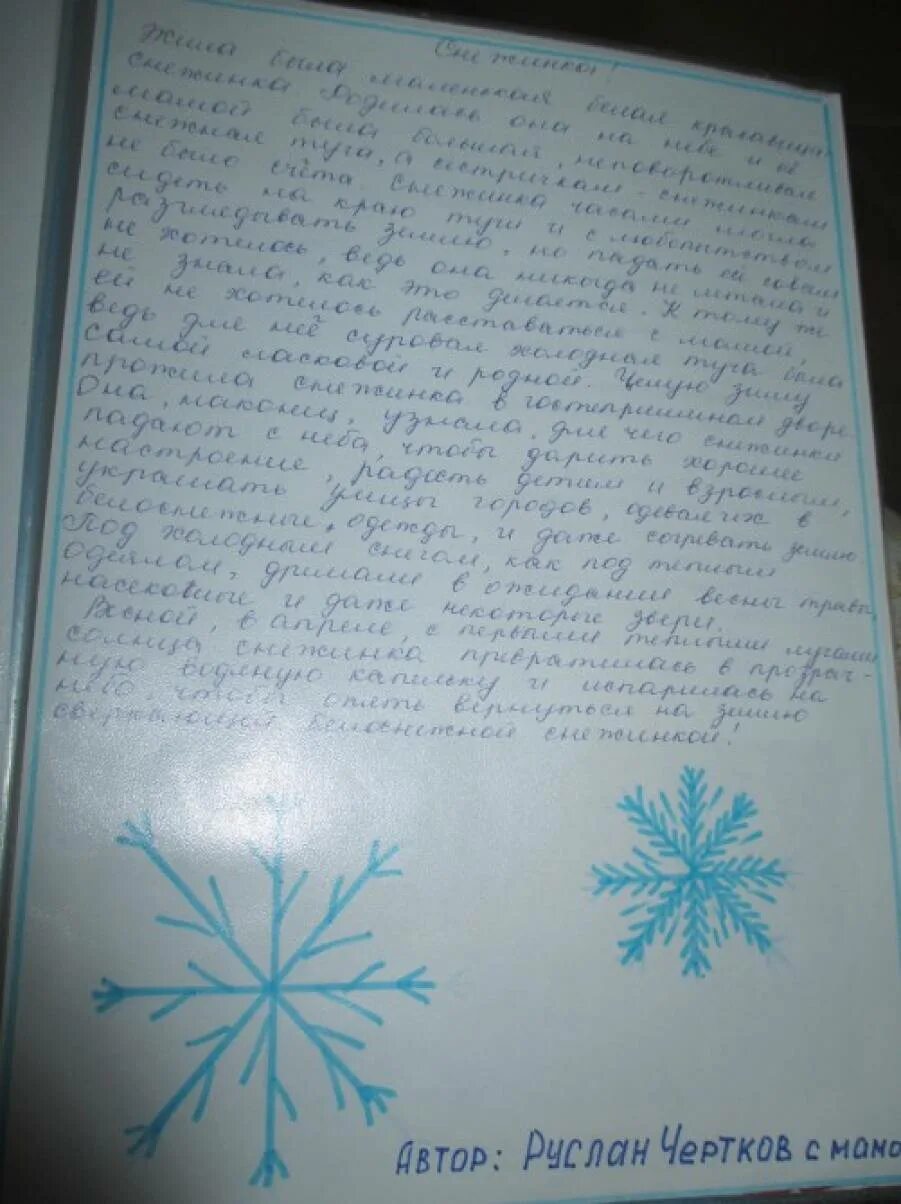 Снежинка!
Жила была маленькая белая красавица
снежинка. Родилась она на небе и её
мамой была большая, неповоротливая
снежная туча, а сестричкам - снежинкам
не было счёта. Снежинка часами могла
сидеть на краю тучи и с любопытством
разглядывать землю, но падать ей совсем
не хотелось, ведь она никогда не летала и
не знала, как это делается. К тому же
ей не хотелось расставаться с мамой,
ведь для неё суровая холодная туча была
самой ласковой и родной. Целую зиму
прожила снежинка в гостеприимном дворе.
Она, наконец, узнала, для чего снежинки
падают с неба, чтобы дарить хорошее
настроение, радость детям и взрослым,
украшать улицы городов, одевая их в
белоснежные одежды, и даже согревать землю.
Под холодным снегом, как под теплым
одеялом, дремали в ожидании весны травы,
насекомые и даже некоторые звери.
Весной, в апреле, с первыми теплыми лучами
солнца снежинка превратилась в прозрач-
ную водяную капельку и испарилась на
небо, чтобы опять вернуться на землю
сверкающей белоснежной снежинкой!
Автор: Руслан Чертков с мамо